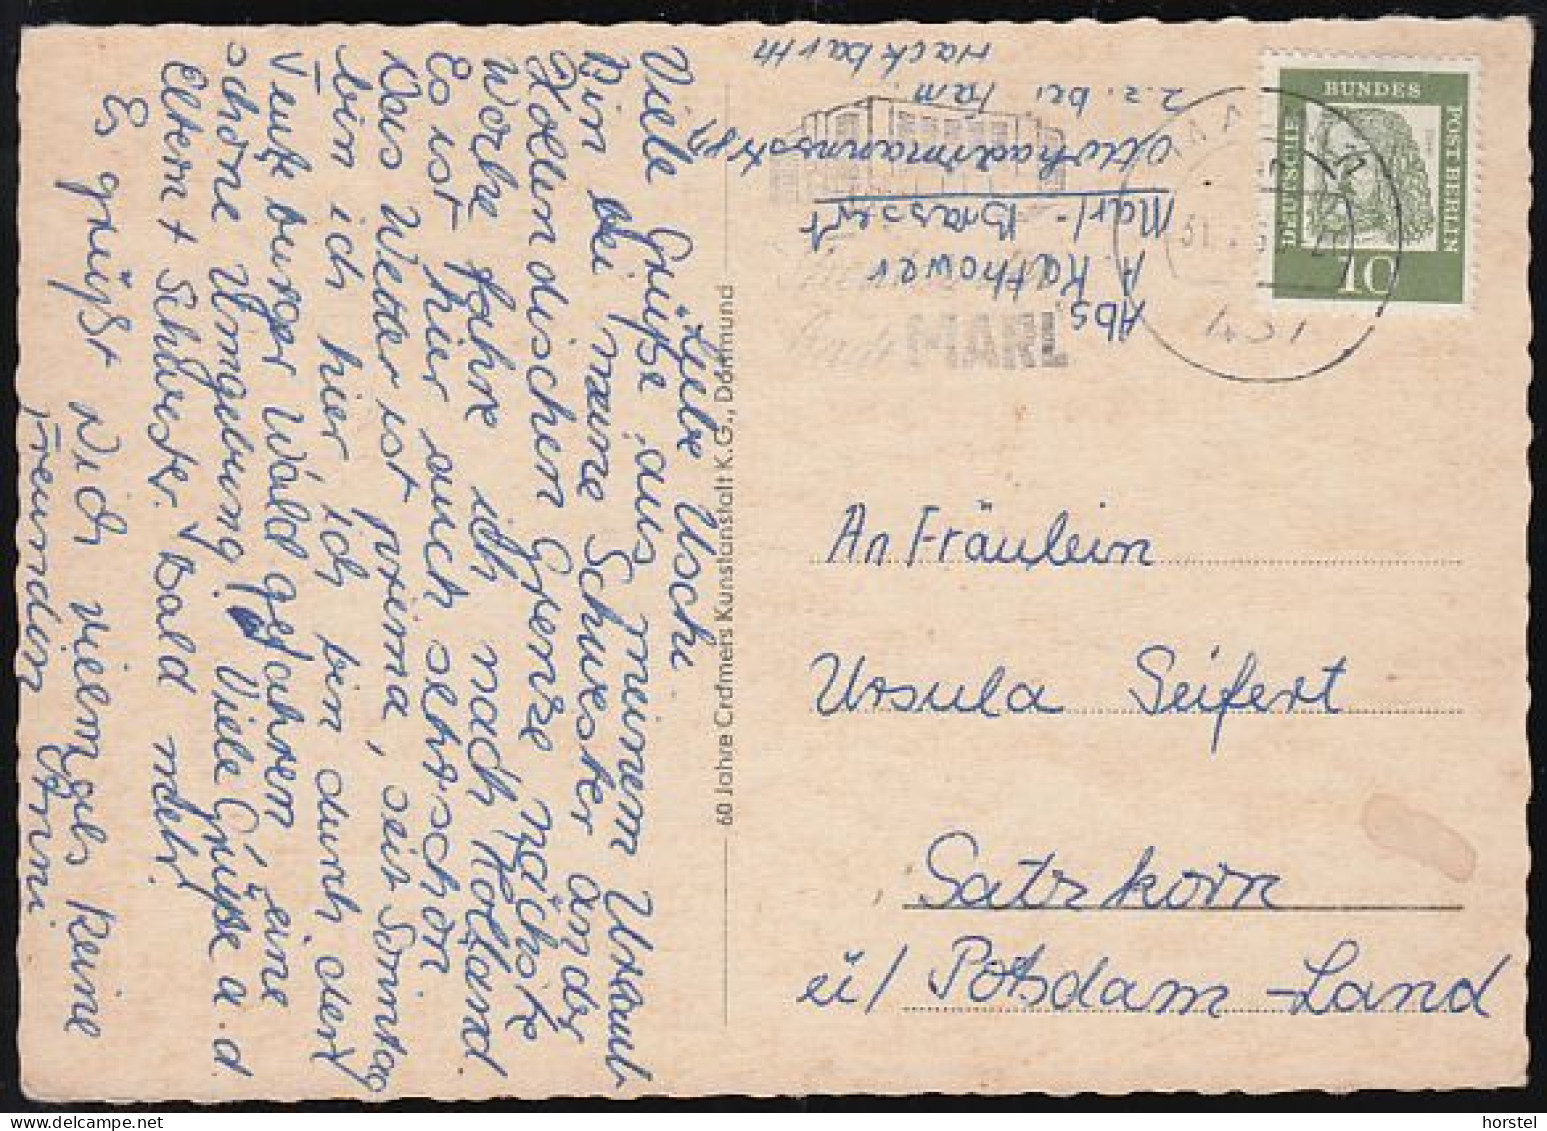 Liebe Uschi
Viele Grüße aus meinem Urlaub
Bin bei meine Schwester an der
Holländischen Grenze nächste
Woche fahre ich nach Holland.
Es ist hier auch sehr schön
Das Wetter ist prima, seit Sonntag
bin ich hier, ich bin durch den
Teuteburger Wald gefahren, eine
schöne Umgebung. Viele Grüße a. d
Eltern + Schwester. Bald mehr.
Es grüßt Dich vielmals Deine
Freundin Anni
60 Jahre Cramers Kunstanstalt K.G., Dortmund
Abs.
A. Kathower
Marl-Brassert
z. Z. bei Fam.
Hackbarth
nach MARL
DEUTSCHE
BUNDES
POST BERLIN
10
An Fräulein
Ursula Seifert
Satzkorn
ü/ Potsdam-Land
horstel